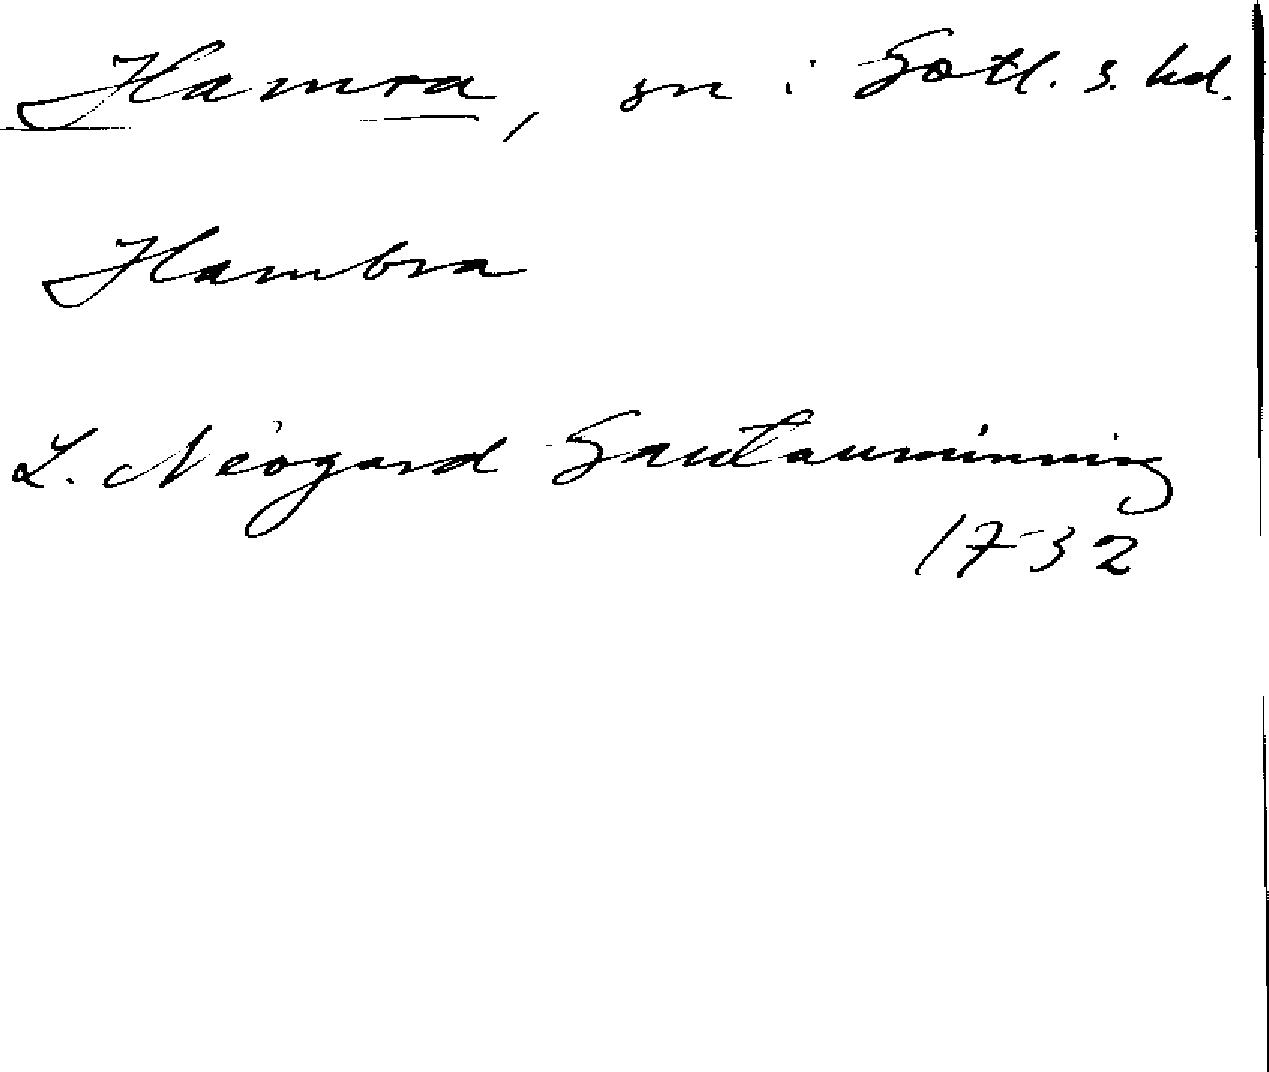 Hamra, sn i Gotl. s. hd.
Hambra
L. Néogard Gautauminning
1732